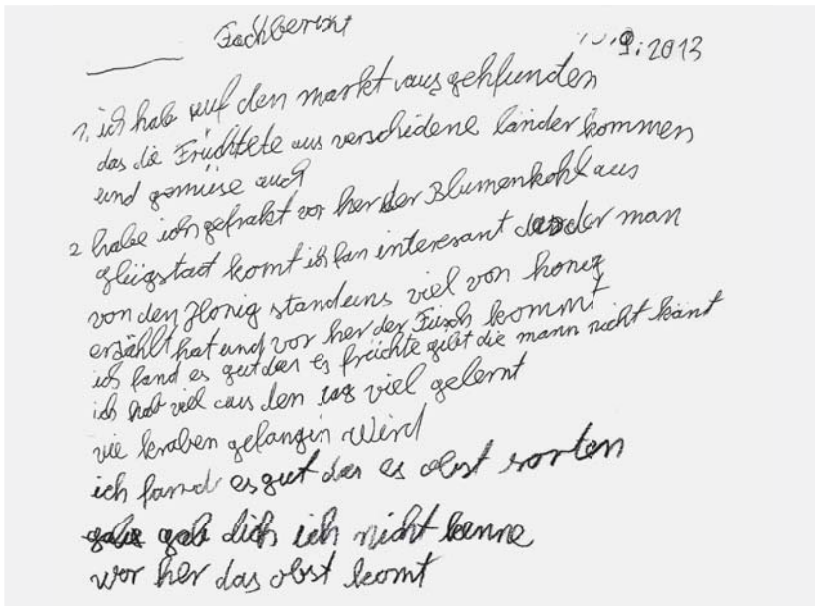 Fachbericht
9.2013
1. ich hab auf den markt raus gehfunden
das die Früchtete aus verschidene länder kommen
und gemüse auch
2 habe ich gefrakt vor her der Blumenkohl aus
glügstadt komt ich fan interesant das der man
von den Honig stand uns viel von honig
erzählt hat und vor her der Fisch kommt
ich fand es gut das es früchte gibt die mann nicht känt
ich hab viel aus den tag viel gelernt
vie kraben gefangin wird
ich fand es gut das es obst sorten
gab dich ich nicht kenne
wor her das obst komt